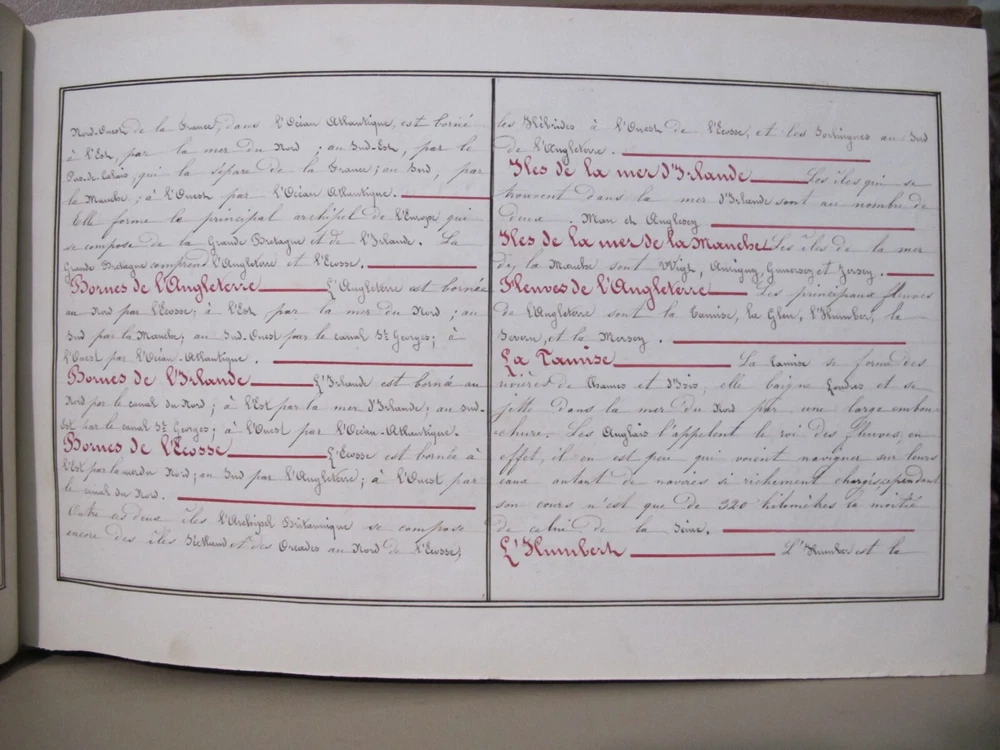 Nord-Ouest de la France, dans l'Océan Atlantique, est borné
à l'Est, par la mer du Nord ; au Sud-Est, par le
Pas-de-Calais, qui la sépare de la France ; au Sud, par
la Manche ; à l'Ouest par l'Océan Atlantique.
Elle forme le principal archipel de l'Europe qui
se compose de la Grande Bretagne et de l'Irlande. La
Grande Bretagne comprend l'Angleterre et l'Ecosse.
Bornes de l'Angleterre L'Angleterre est bornée
au Nord par l'Ecosse ; à l'Est par la mer du Nord ; au
Sud par la Manche ; au Sud-Ouest par le canal St Georges ; à
l'Ouest par l'Océan-Atlantique.
Bornes de l'Irlande L'Irlande est borné au
Nord par le canal du Nord ; à l'Est par la mer d'Irlande ; au Sud-
Est par le canal St Georges ; à l'Ouest par l'Océan-Atlantique.
Bornes de l'Ecosse L'Ecosse est bornée à
l'Est par la mer du Nord ; au Sud par l'Angleterre ; à l'Ouest par
le canal du Nord.
Outre ces deux îles l'Archipel Britannique se compose
encore des îles Shetland et des Orcades au Nord de l'Ecosse,
les Hébrides à l'Ouest de l'Ecosse, et les Sorlingues au Sud
de l'Angleterre.
Iles de la mer d'Irlande Les îles qui se
trouvent dans la mer d'Irlande sont au nombre de
deux : Man et Anglesey
Iles de la mer de la Manche Les îles de la mer
de la Manche sont Wigt, Aurigny, Guernesey et Jersey.
Fleuves de l'Angleterre Les principaux fleuves
de l'Angleterre sont la Tamise, la Glen, l'Humber, la
Severn, et la Mersey.
La Tamise La Tamise se forme des
rivières de Thames et d'Isis, elle baigne Londres et se
jette dans la mer du Nord par une large embou-
-chure. Les Anglais l'appelent le roi des fleuves, en
effet, il en est peu qui voient naviguer sur leurs
eaux autant de navires si richement chargés, cependant
son cours n'est que de 320 kilomètres la moitié
de celui de la Seine.
L'Humbert L'Humber est la